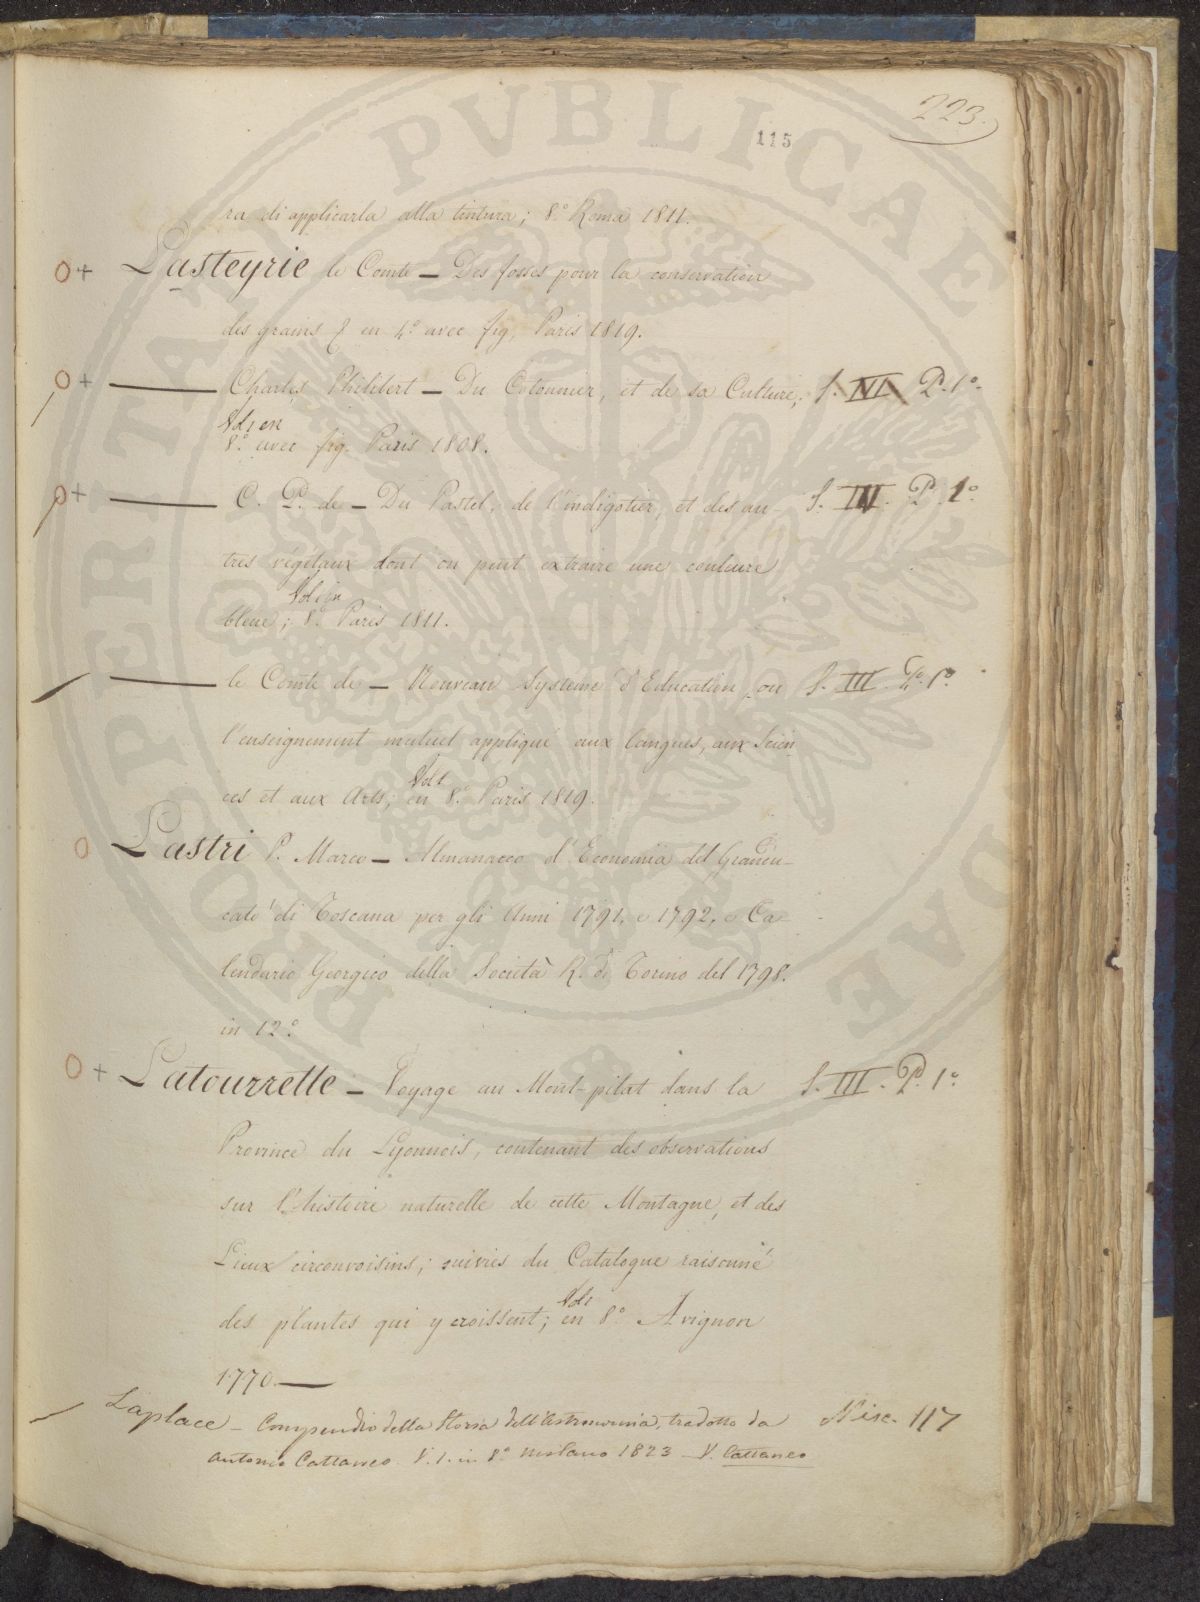 223.
115
ra di applicarla alla tintura; 8.° Roma 1811.
O + Lasteyrie le Comte — Des fosses pour la conservation
des grains & en 4.° avec fig. Paris 1819.
O + —— Charles Philibert — Du Cotonnier, et de sa Culture; S. VI P. 1.°
Vol 1 en
8.° avec fig. Paris 1808.
O + —— C. P. de — Du Pastel, de l'indigotier, et des au- S. III. P. 1.°
tres végétaux dont on peut extraire une couleure
Vol 1 in
bleue; 8.° Paris 1811.
—— le Comte de — Nouveau Systeme d'Education, ou S. III. P. 1.°
l'enseignement mutuel appliqué aux langues, aux Scien
Vol 1
ces et aux Arts; en 8.° Paris 1819.
O Lastri P. Marco — Almanacco d'Economia del Grandu-
cato di Toscana per gli Anni 1791. e 1792. e Ca
lendario Georgico della Società R. di Torino del 1798.
in 12.°
O + Latourrette — Voyage au Mont-pilat dans la S. III. P. 1.°
Province du Lyonnois, contenant des observations
sur l'histoire naturelle de cette Montagne, et des
Lieux circonvoisins; suivies du Catalogue raisonné
Vol 1
des plantes qui y croissent; en 8.° Avignon
1770. —
Laplace — Compendio della Storia dell'Astronomia, tradotto da Misc. 117
Antonio Cattaneo V. 1. in 8.° Milano 1823 — V. Cattaneo
PROPERITATI PVBLICAE